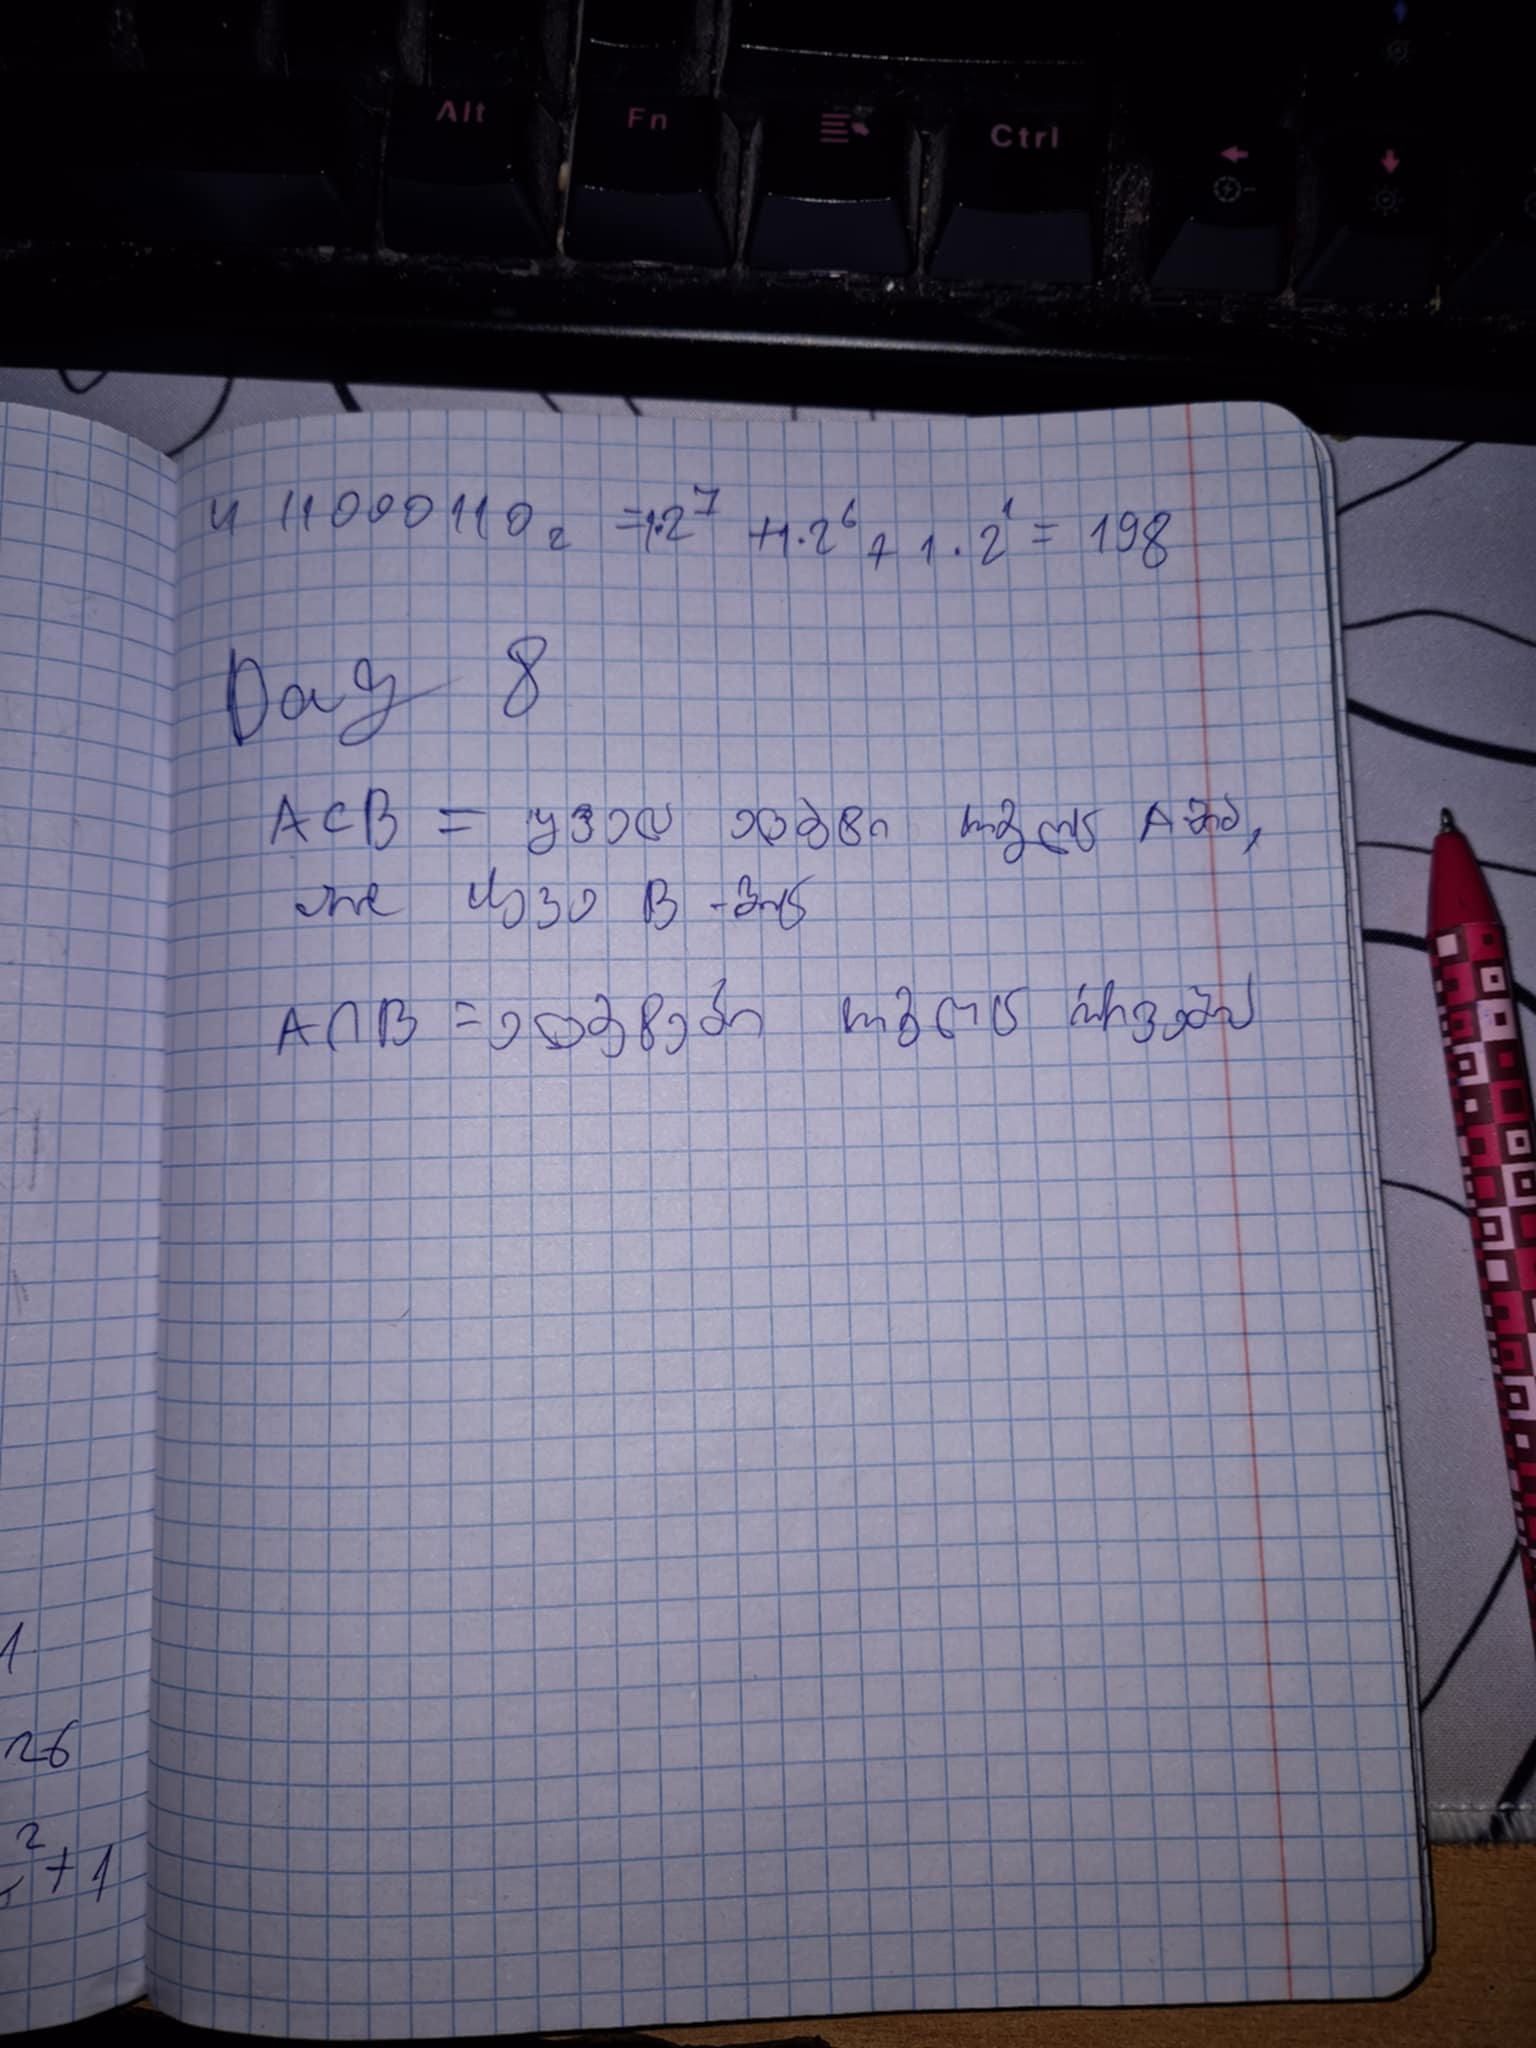 Alt Fn Ctrl
4 11000110₂ = 1·2⁷ + 1·2⁶ + 1·2¹ = 198
Day 8
A⊂B = ყველ ელემენ რომელიც A-შია,
არის ასევე B-შიც
A∩B = ელემენტები რომელიც ორივეშია
1
26
² + 1